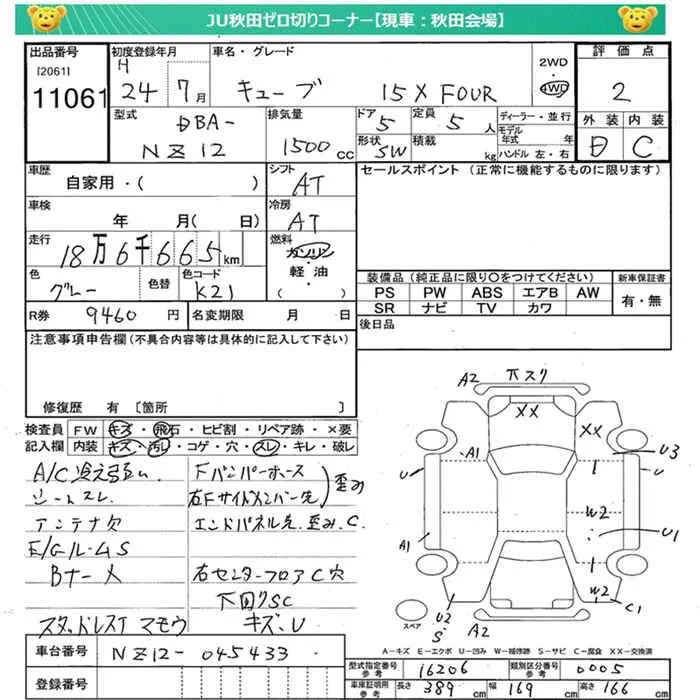 JU秋田ゼロ切りコーナー【現車：秋田会場】
出品番号 [2061] 11061
初度登録年月 H 24 7月
車名・グレード キューブ 15X FOUR
2WD 4WD
評価点 2
外装 D 内装 C
型式 DBA- NZ12
排気量 1500cc
ドア 5 定員 5人
形状 SW 積載 kg
ディーラー・並行
モデル年式 年
ハンドル 左・右
車歴 自家用・( )
シフト AT
セールスポイント（正常に機能するものに限ります）
車検 年 月( 日)
冷房 AT
走行 18万6千665km
燃料 ガソリン 軽油 ( )
色 グレー 色替 色コード K21
装備品（純正品に限り〇をつけてください） 新車保証書
PS PW ABS エアB AW 有・無
SR ナビ TV カワ
R券 9460円 名変期限 月 日
後日品
注意事項申告欄（不具合内容等は具体的に記入して下さい）
修復歴 有 〔箇所 〕
検査員 FW キズ・飛石・ヒビ割・リペア跡・×要
記入欄 内装 キズ・汚れ・コゲ・穴・スレ・キレ・破レ
A/C冷え弱い Fバンパーホース
シートスレ 右Fサイドメンバー先 歪み
アンテナ欠 エンドパネル先.歪み.C
E/Gル-ムS
Bナーメ 右センターフロアC穴
下回りSC
スタッドレスT マモウ キズ、U
A2 下スリ
XX XX
A1 U3
U U
W2
A1 U1
W2
U2・S A2 C1
スペア
A-キズ E-エクボ U-凹み W-補修跡 S-サビ C-腐食 XX-交換済
車台番号 NZ12-045433
登録番号
型式指定番号 参考 16206 類別区分番号 参考 0005
車庫証明用 参考 長さ 389cm 幅 169cm 高さ 166cm